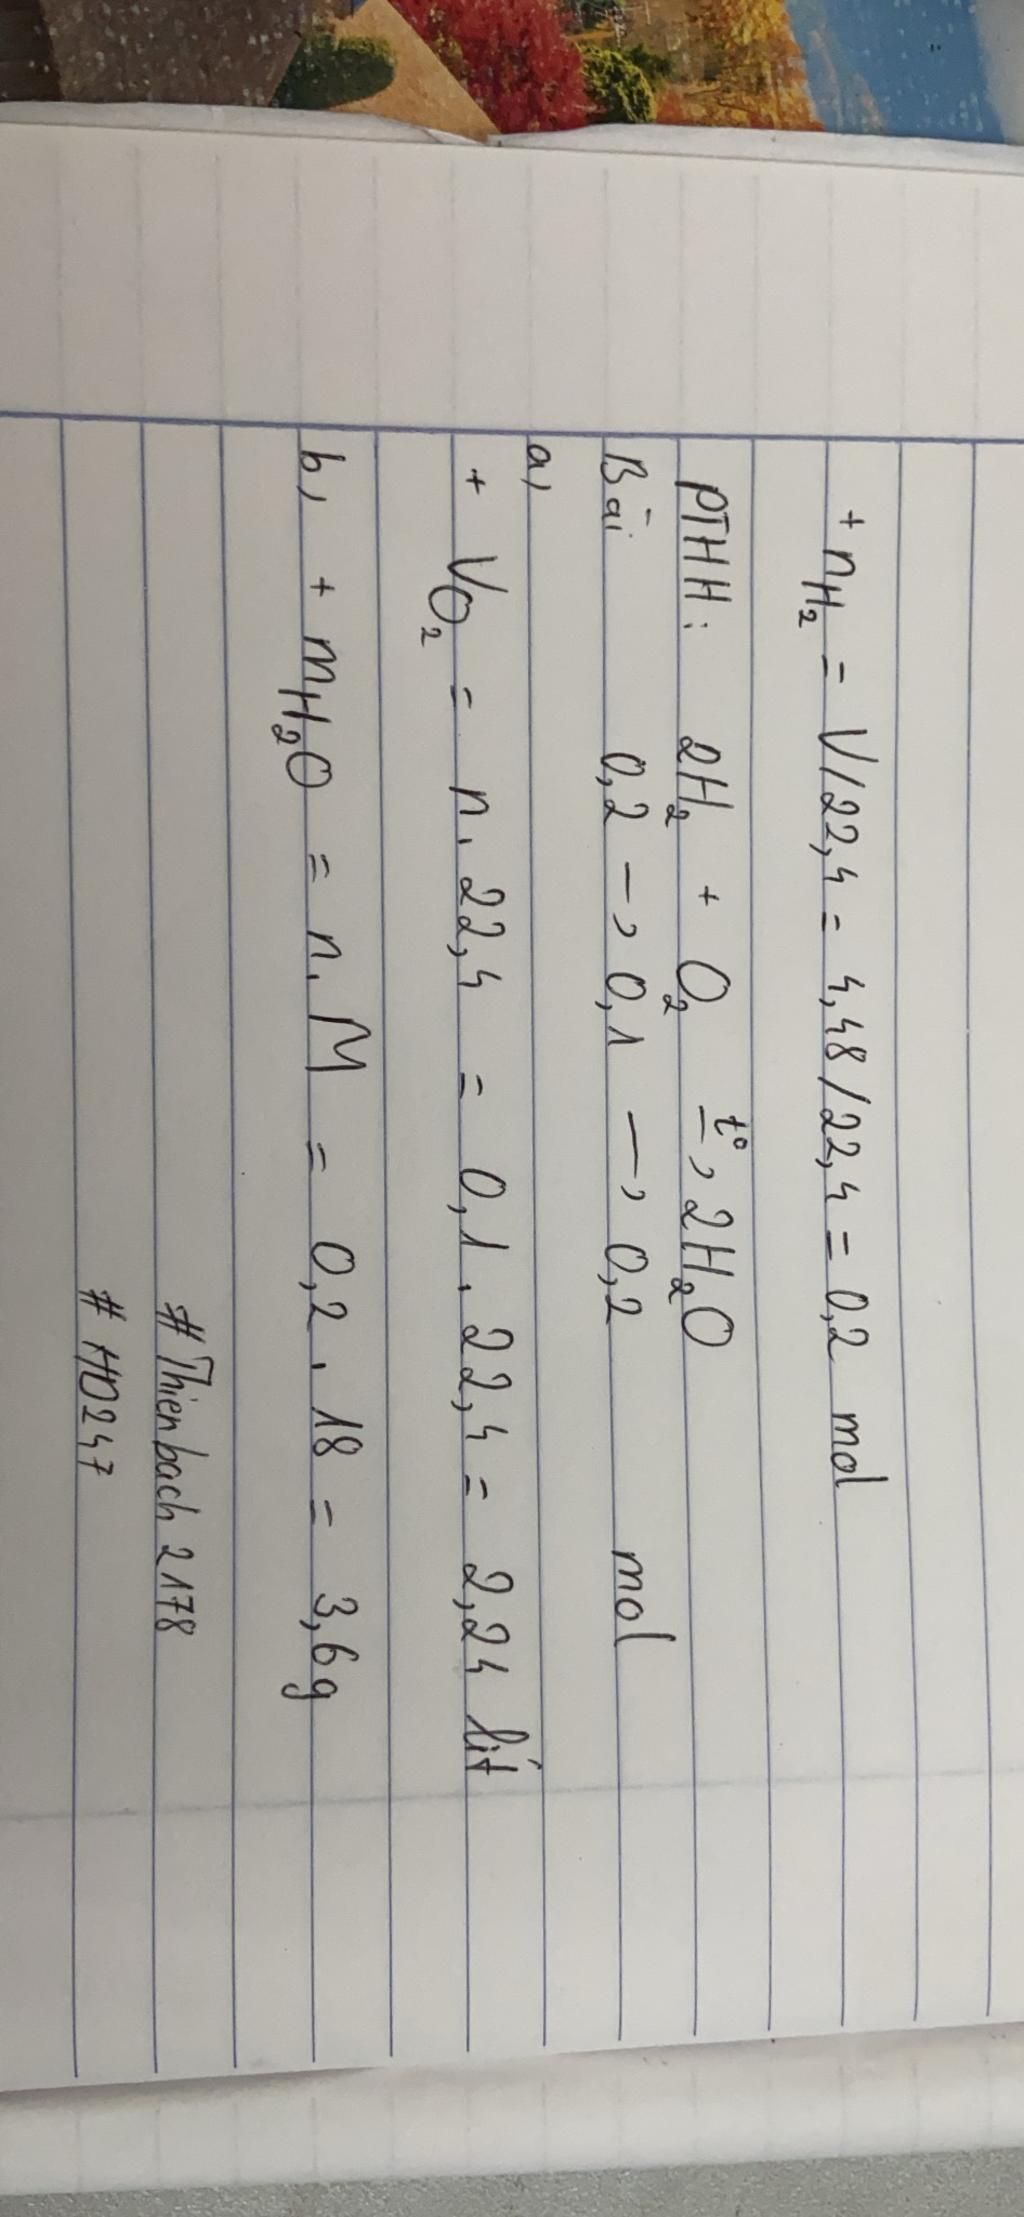 + nH₂ = V/22,4 = 4,48/22,4 = 0,2 mol
PTHH: 2H₂ + O₂ –t°→ 2H₂O
Bài 0,2 → 0,1 → 0,2 mol
a,
+ VO₂ = n. 22,4 = 0,1 . 22,4 = 2,24 lít
b, + mH₂O = n. M = 0,2 . 18 = 3,6g
#Thienbach2178
#HD247